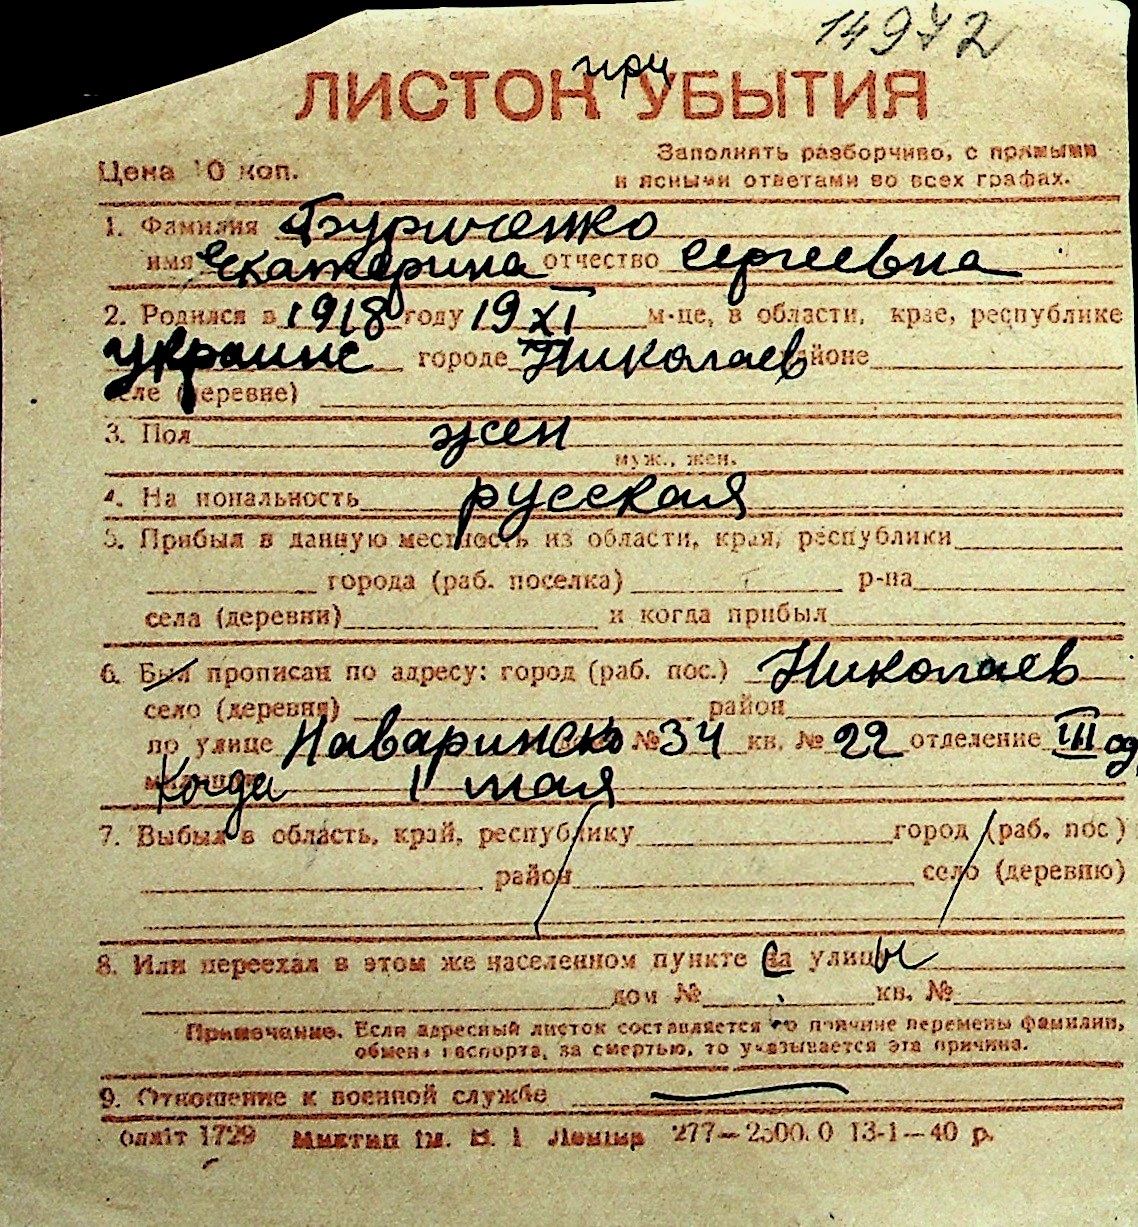 14972
при
ЛИСТОК УБЫТИЯ
Цена 10 коп.
Заполнять разборчиво, с прямыми
и ясными ответами во всех графах.
1. Фамилия Бурченко
имя Екатерина отчество Сергеевна
2. Родился в 1918 году 19 XI м-це, в области, крае, республике
Украине городе Николаев районе
селе (деревне)
3. Пол жен
муж., жен.
4. Национальность русская
5. Прибыл в данную местность из области, края, республики
города (раб. поселка) р-на
села (деревни) и когда прибыл
6. Был прописан по адресу: город (раб. пос.) Николаев
село (деревня) район
по улице Наваринско № 34 кв. № 22 отделение III од
Когда 1 мая
7. Выбыл в область, край, республику город (раб. пос)
район село (деревню)
8. Или переехал в этом же населенном пункте са улицы
дом № кв. №
Примечание. Если адресный листок составляется по причине перемены фамилии,
обмена паспорта, за смертью, то указывается эта причина.
9. Отношение к военной службе
1729 ім. В. І. Леніна 277—2500.0 13-1—40 р.